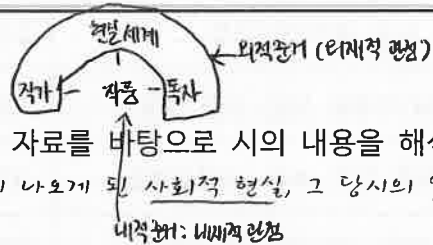 현실세계
외적준거 (외재적 관점)
작가 작품 독자
자료를 바탕으로 시의 내용을 해석
나오게 된 사회적 현실, 그 당시의
내적준거: 내재적 관점